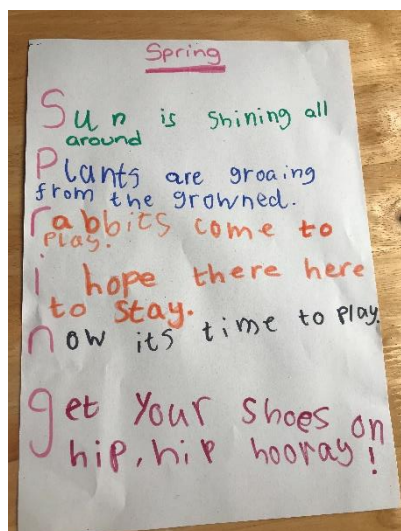 Spring
Sun is shining all
around
Plants are groaing
from the growned.
rabbits come to
play.
i hope there here
to stay.
now its time to play.
get your shoes on
hip, hip hooray!